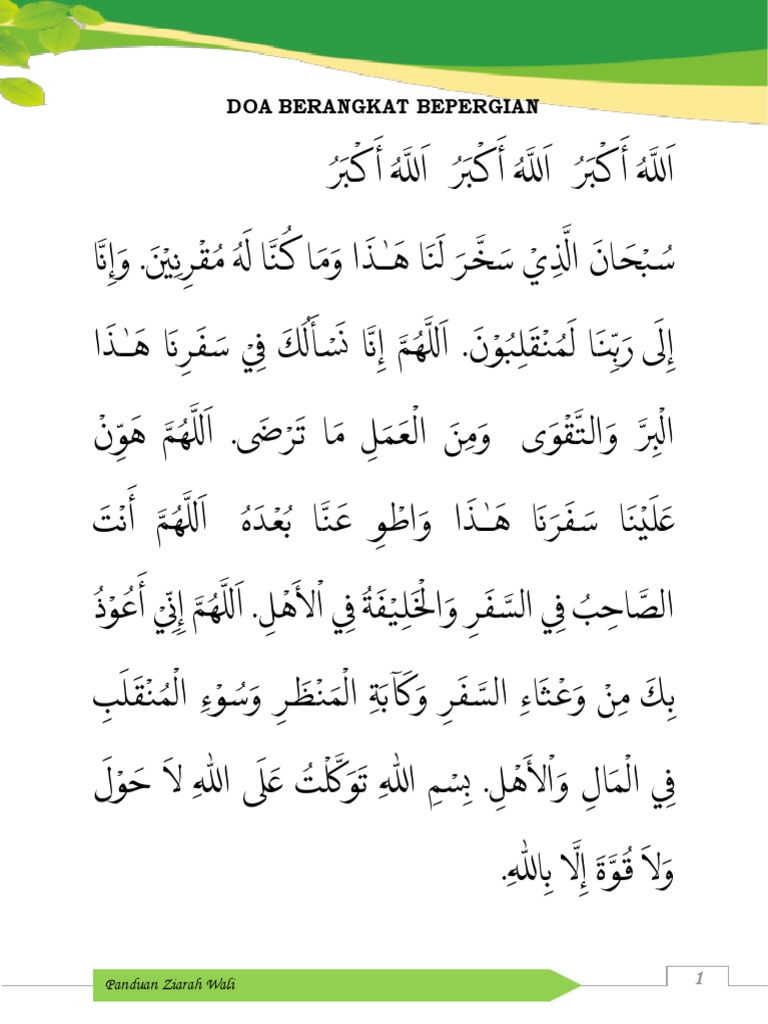 DOA BERANGKAT BEPERGIAN
اَللَّهُ أَكْبَرُ اَللَّهُ أَكْبَرُ اَللَّهُ أَكْبَرُ
سُبْحَانَ الَّذِيْ سَخَّرَ لَنَا هَـٰذَا وَمَا كُنَّا لَهُ مُقْرِنِيْنَ. وَإِنَّا
إِلَى رَبِّنَا لَمُنْقَلِبُوْنَ. اَللَّهُمَّ إِنَّا نَسْأَلُكَ فِيْ سَفَرِنَا هَـٰذَا
الْبِرَّ وَالتَّقْوَى وَمِنَ الْعَمَلِ مَا تَرْضَى. اَللَّهُمَّ هَوِّنْ
عَلَيْنَا سَفَرَنَا هَـٰذَا وَاطْوِ عَنَّا بُعْدَهُ اَللَّهُمَّ أَنْتَ
الصَّاحِبُ فِي السَّفَرِ وَالْخَلِيْفَةُ فِي الْأَهْلِ. اَللَّهُمَّ إِنِّيْ أَعُوْذُ
بِكَ مِنْ وَعْثَاءِ السَّفَرِ وَكَآبَةِ الْمَنْظَرِ وَسُوْءِ الْمُنْقَلَبِ
فِي الْمَالِ وَالْأَهْلِ. بِسْمِ اللهِ تَوَكَّلْتُ عَلَى اللهِ لاَ حَوْلَ
وَلاَ قُوَّةَ إِلَّا بِاللهِ.
Panduan Ziarah Wali
1